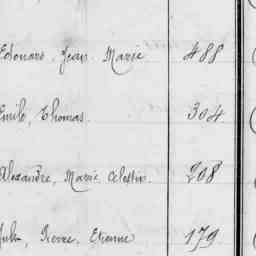 Edouard, Jean Marie 488
Emile, Thomas. 304
Alexandre, Marie Célestin. 208
Jules, Pierre, Etienne 179